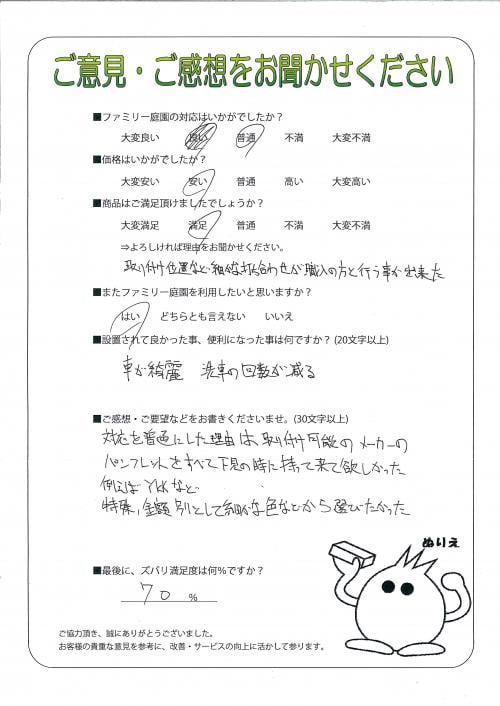 ご意見・ご感想をお聞かせください
■ファミリー庭園の対応はいかがでしたか？
大変良い 良い 普通 不満 大変不満
■価格はいかがでしたか？
大変安い 安い 普通 高い 大変高い
■商品はご満足頂けましたでしょうか？
大変満足 満足 普通 不満 大変不満
⇒よろしければ理由をお聞かせください。
取り付け位置など細かな打ち合わせが職人の方と行う事が出来た
■またファミリー庭園を利用したいと思いますか？
はい どちらとも言えない いいえ
■設置されて良かった事、便利になった事は何ですか？(20文字以上)
車が綺麗 洗車の回数が減る
■ご感想・ご要望などをお書きくださいませ。(30文字以上)
対応を普通にした理由は、取り付け可能のメーカーの
パンフレットをすべて下見の時に持って来て欲しかった
例えばYKKなど
特殊,金額別として細かな色などから選びたかった
ぬりえ
■最後に、ズバリ満足度は何%ですか？
70 %
ご協力頂き、誠にありがとうございました。
お客様の貴重な意見を参考に、改善・サービスの向上に活かして参ります。